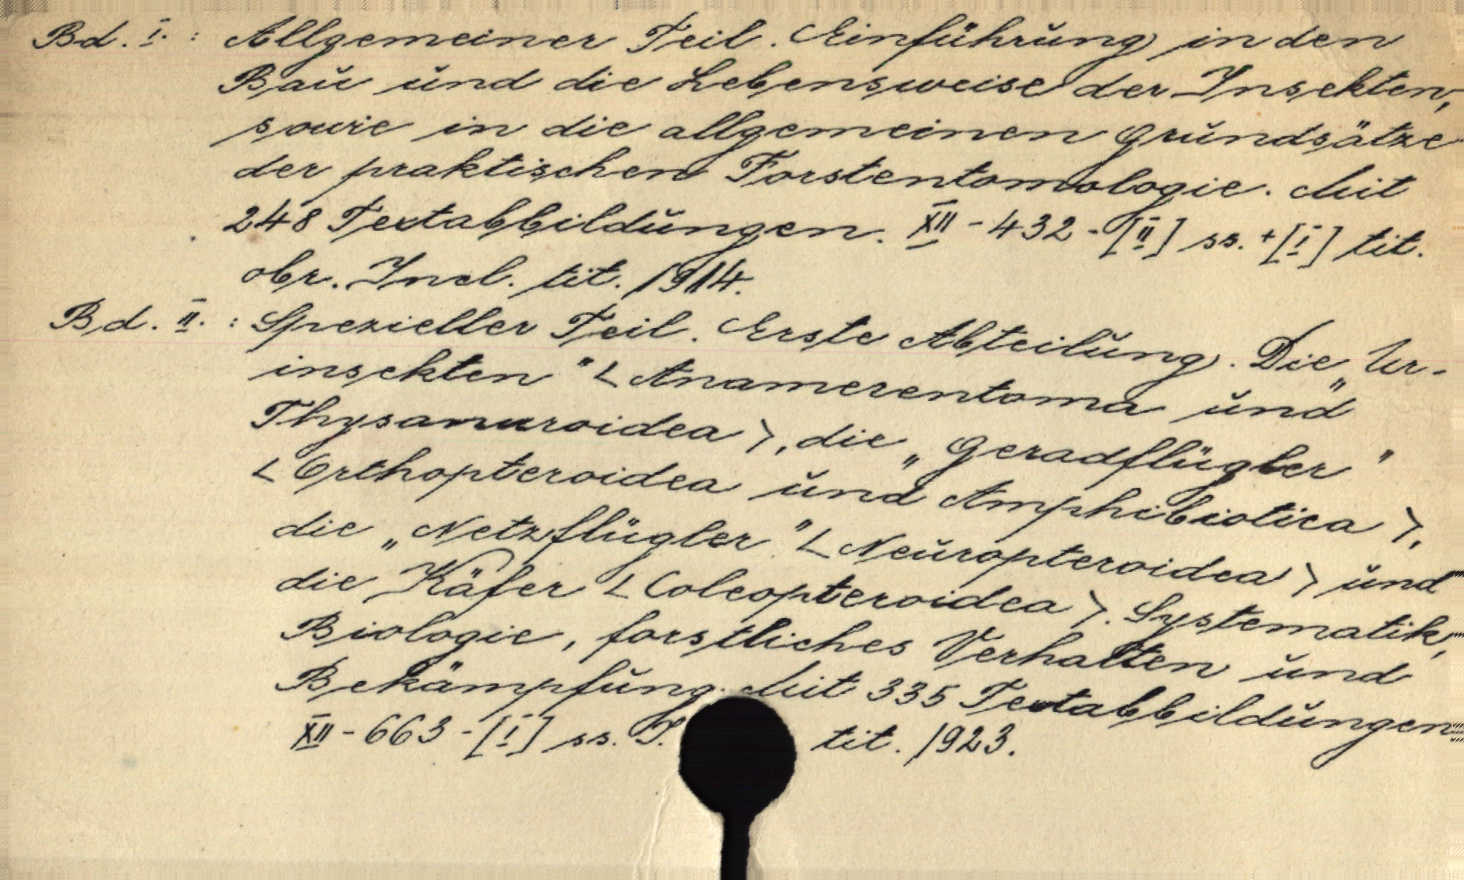 Bd. I. : Allgemeiner Teil. Einführung in den
Bau und die Lebensweise der Insekten,
sowie in die allgemeinen Grundsätze
der praktischen Forstentomologie. Mit
248 Textabbildungen. XII - 432 - [II] ss. + [I] tit.
obr. Incl. tit. 1914.
Bd. II. : Spezieller Teil. Erste Abteilung. Die „Ur-
insekten" < Anamerentoma und
Thysanuroidea >, die „Geradflügler"
< Orthopteroidea und Amphibiotica >,
die „Netzflügler" < Neuropteroidea > und
die Käfer < Coleopteroidea >. Systematik,
Biologie, forstliches Verhalten und
Bekämpfung. Mit 335 Textabbildungen
XII - 663 - [I] ss. I. tit. 1923.